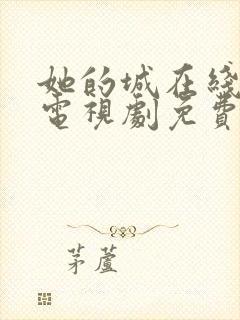 她的城在綫
電視劇免費
茅蘆